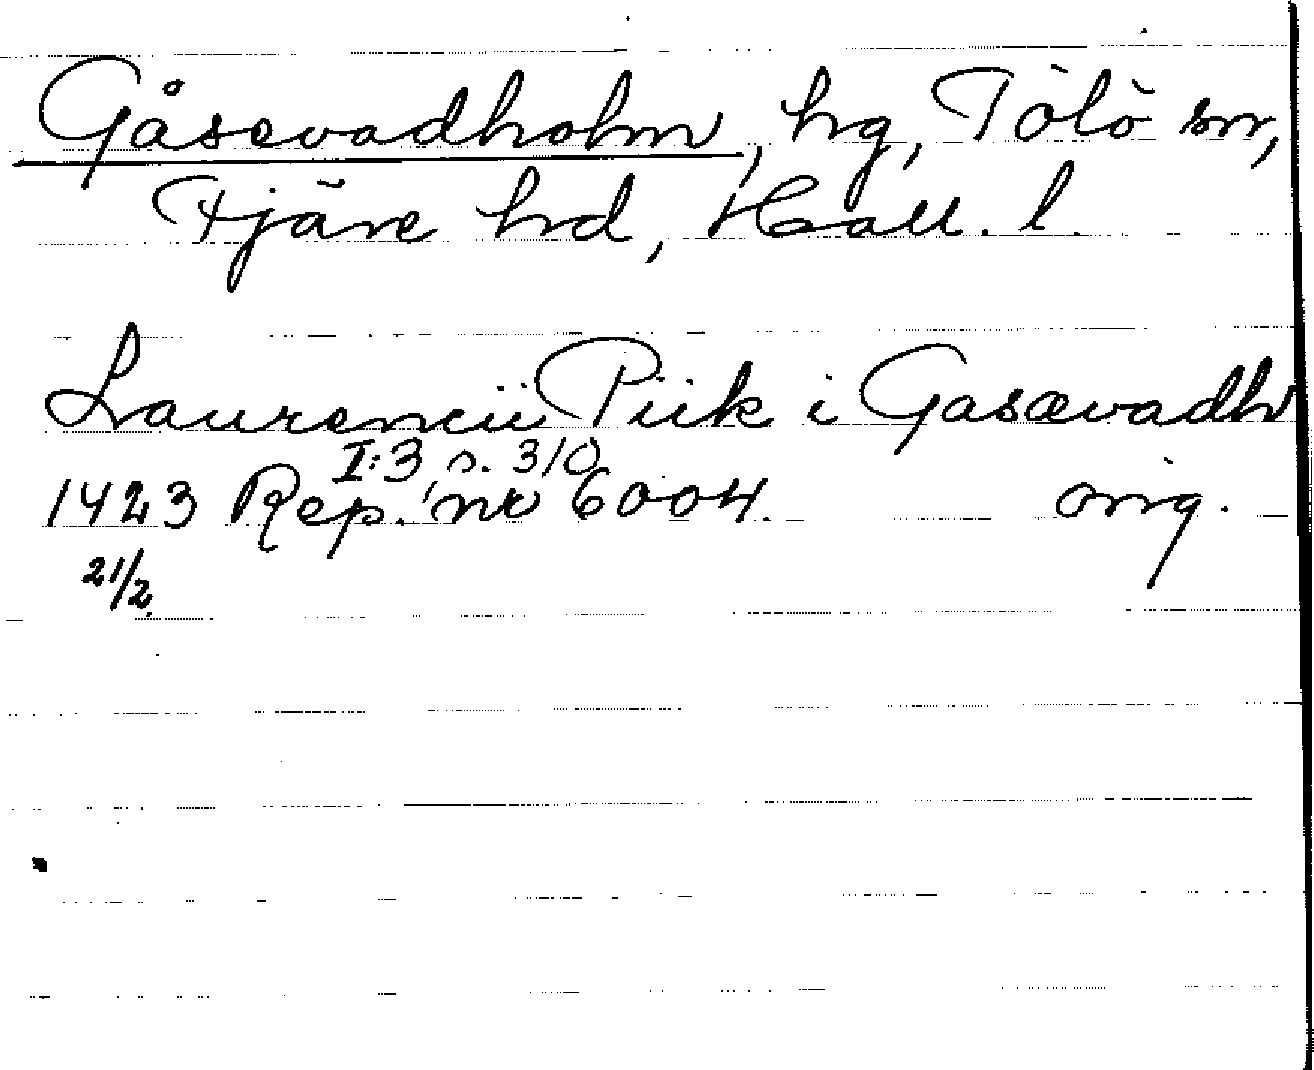 Gåsevadholm, hg, Tölö sn,
Fjäre hd, Hall. l.
Laurencii Piik i Gasævadh
I:3, s. 310
1423 Rep. nr 6004. orig.
21/2